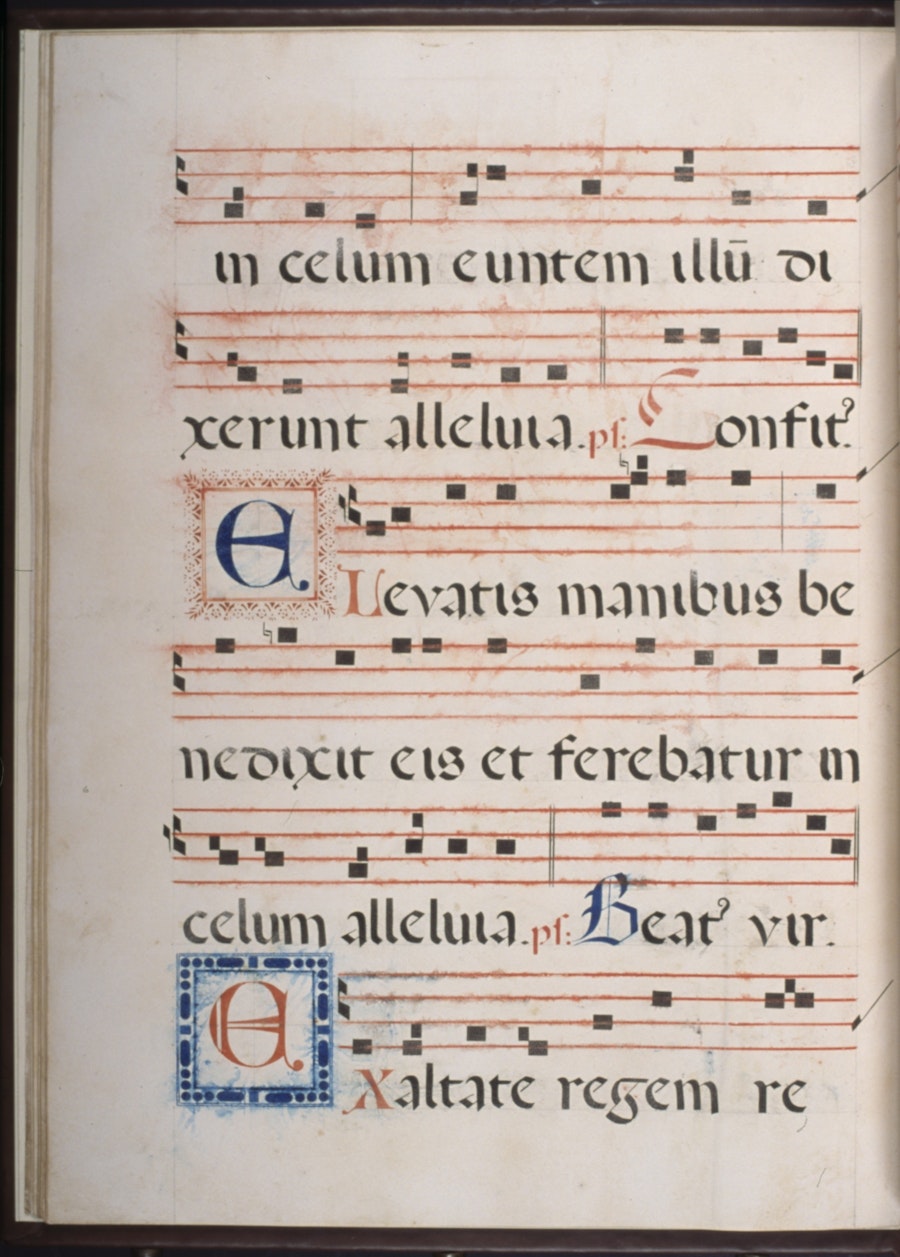 in celum euntem illū di
xerunt alleluia. ps: Confit̉.
ELevatis manibus be
nedixit eis et ferebatur in
celum alleluia. ps: Beat̉ vir.
EXaltate regem re